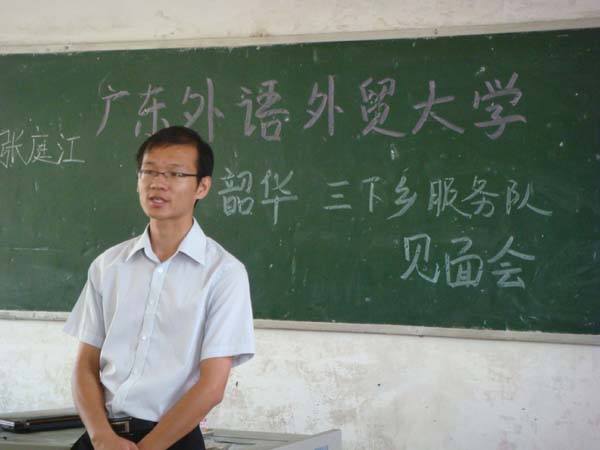 广东外语外贸大学
张庭江
韶华 三下乡服务队
见面会